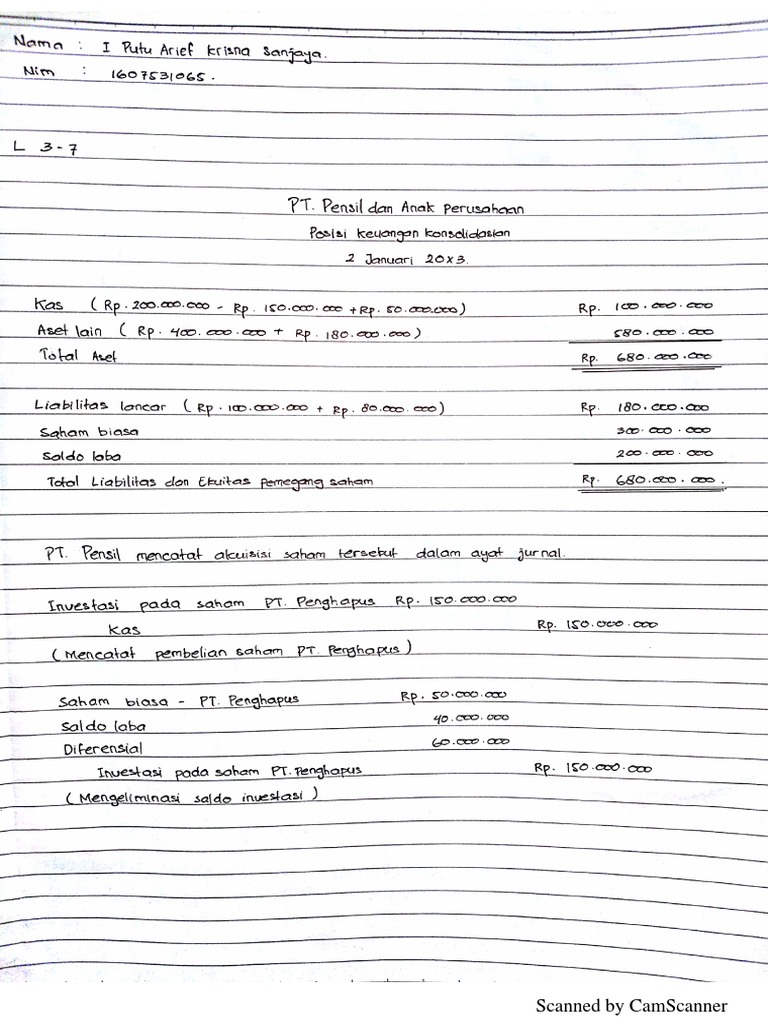 Nama : I Putu Arief Krisna Sanjaya.
Nim : 1607531065.
L 3-7
PT. Pensil dan Anak perusahaan
Posisi Keuangan Konsolidasian
2 Januari 20x3.
Kas (Rp. 200.000.000 - Rp. 150.000.000 + Rp. 50.000.000) Rp. 100.000.000
Aset lain (Rp. 400.000.000 + Rp. 180.000.000) 580.000.000
Total Aset Rp. 680.000.000
Liabilitas lancar (Rp. 100.000.000 + Rp. 80.000.000) Rp. 180.000.000
Saham biasa 300.000.000
Saldo laba 200.000.000
Total Liabilitas dan Ekuitas pemegang saham Rp. 680.000.000.
PT. Pensil mencatat akuisisi saham tersebut dalam ayat jurnal.
Investasi pada saham PT. Penghapus Rp. 150.000.000
Kas Rp. 150.000.000
(Mencatat pembelian saham PT. Penghapus)
Saham biasa - PT. Penghapus Rp. 50.000.000
Saldo laba 40.000.000
Diferensial 60.000.000
Investasi pada saham PT. Penghapus Rp. 150.000.000
(Mengeliminasi saldo investasi)
Scanned by CamScanner